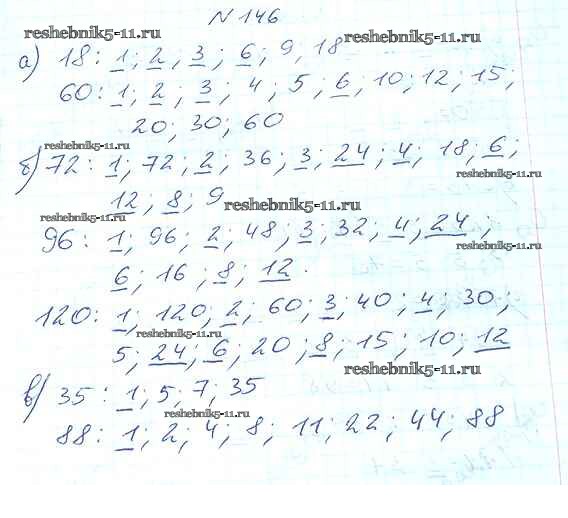 N 146
reshebnik5-11.ru
reshebnik5-11.ru
а) 18: 1; 2; 3; 6; 9, 18
60: 1; 2; 3; 4; 5; 6; 10; 12; 15;
reshebnik5-11.ru
20; 30; 60
reshebnik5-11.ru
б) 72: 1; 72; 2; 36; 3; 24; 4; 18; 6;
12; 8; 9
reshebnik5-11.ru
reshebnik5-11.ru
96: 1; 96; 2; 48; 3; 32; 4; 24;
reshebnik5-11.ru
6; 16; 8; 12.
120: 1; 120; 2; 60; 3; 40; 4; 30;
reshebnik5-11.ru
5; 24; 6; 20; 8; 15; 10; 12
reshebnik5-11.ru
в) 35: 1; 5; 7; 35
reshebnik5-11.ru
88: 1; 2; 4; 8; 11; 22; 44; 88